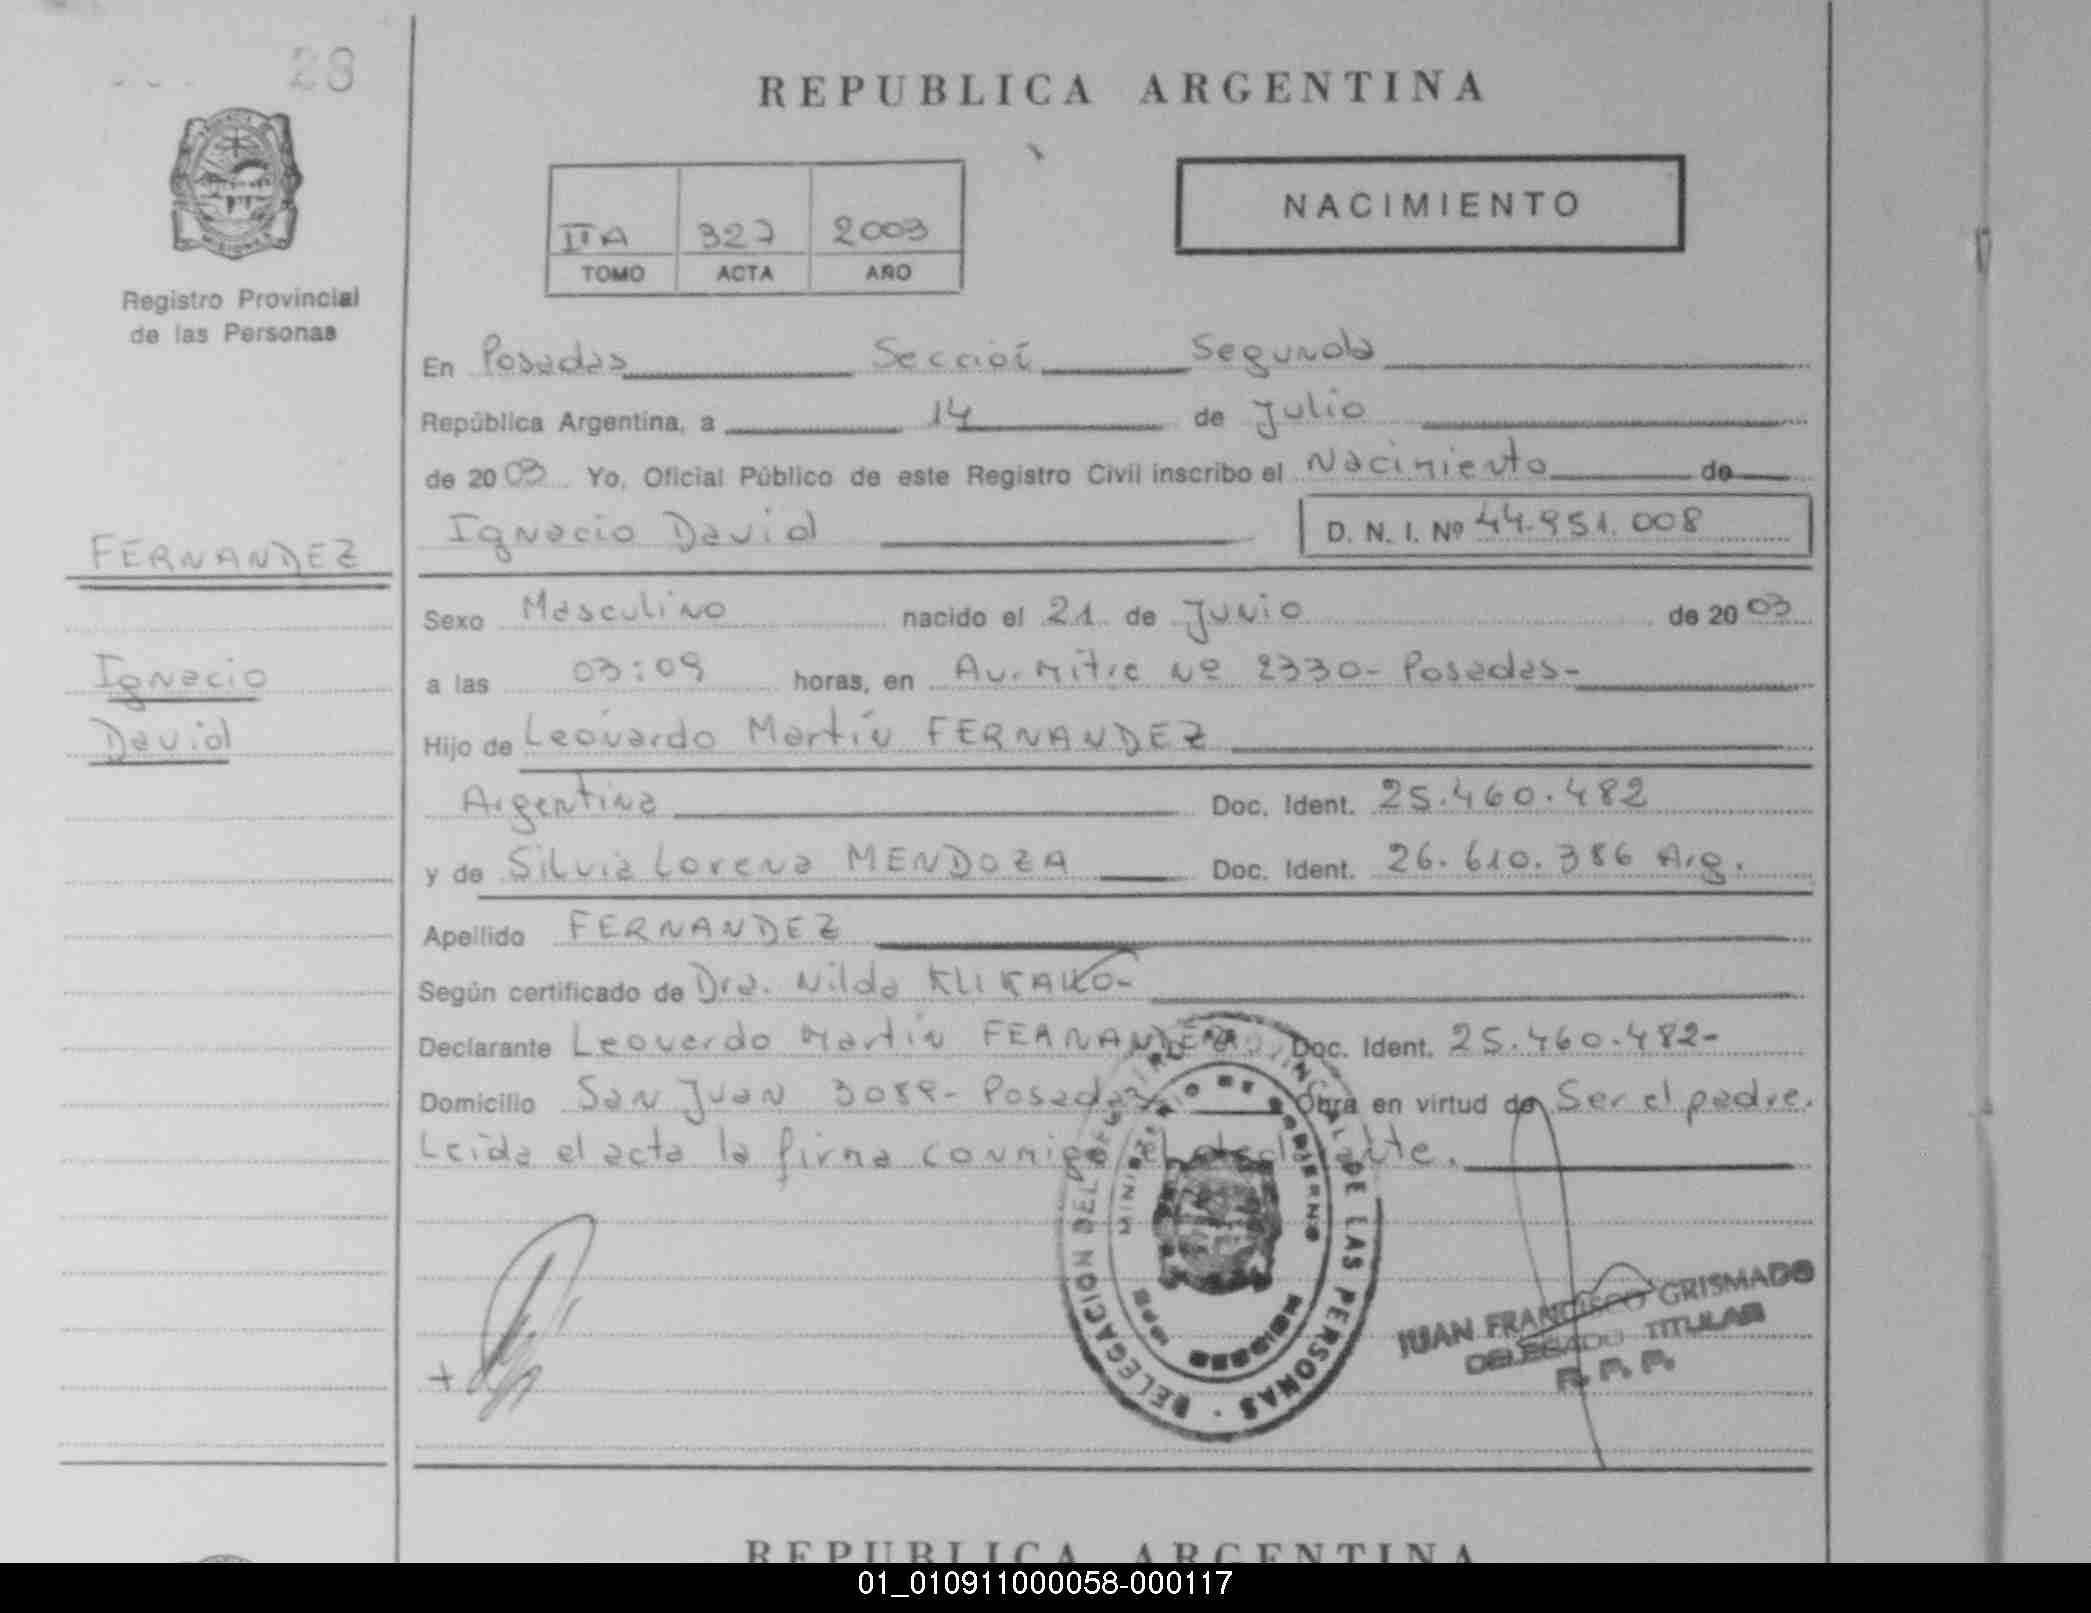 28
REPUBLICA ARGENTINA
NACIMIENTO
IIA 327 2003
TOMO ACTA AÑO
Registro Provincial
de las Personas
En Posadas Sección Segunda
República Argentina, a 14 de Julio
de 2003 Yo, Oficial Público de este Registro Civil inscribo el Nacimiento de
Ignacio David D. N. I. Nº 44.951.008
FERNANDEZ
Ignacio
David
Sexo Masculino nacido el 21 de Junio de 2003
a las 03:09 horas, en Av. Mitre Nº 2330- Posadas-
Hijo de Leonardo Martín FERNANDEZ
Argentina Doc. Ident. 25.460.482
y de Silvia Lorena MENDOZA Doc. Ident. 26.610.386 Arg.
Apellido FERNANDEZ
Según certificado de Dra. Nilda
Declarante Leonardo Martín FERNANDEZ Doc. Ident. 25.460.482-
Domicilio San Juan Posadas Obra en virtud de Ser el padre.
Leída el acta la firma conmigo el declarante.
DELEGACION DEL REGISTRO PROVINCIAL DE LAS PERSONAS
MINISTERIO DE GOBIERNO
MISIONES
JUAN FRANCISCO GRISMADO
DELEGADO TITULAR
R. P. P.
REPUBLICA ARGENTINA
01_010911000058-000117